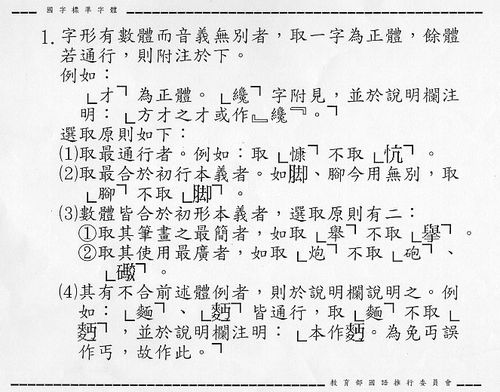 國字標準字體
1.字形有數體而音義無別者，取一字為正體，餘體
若通行，則附注於下。
例如：
「才」為正體。「纔」字附見，並於說明欄注
明：「方才之才或作『纔』。」
選取原則如下：
(1)取最通行者。例如：取「慷」不取「忼」。
(2)取最合於初行本義者。如脚、腳今用無別，取
「腳」不取「脚」。
(3)數體皆合於初形本義者，選取原則有二：
①取其筆畫之最簡者，如取「舉」不取「擧」。
②取其使用最廣者，如取「炮」不取「砲」、
「礮」。
(4)其有不合前述體例者，則於說明欄說明之。例
如：「麵」、「麪」皆通行，取「麵」不取「
麪」，並於說明欄注明：「本作麪。為免丏誤
作丐，故作此。」
教育部國語推行委員會